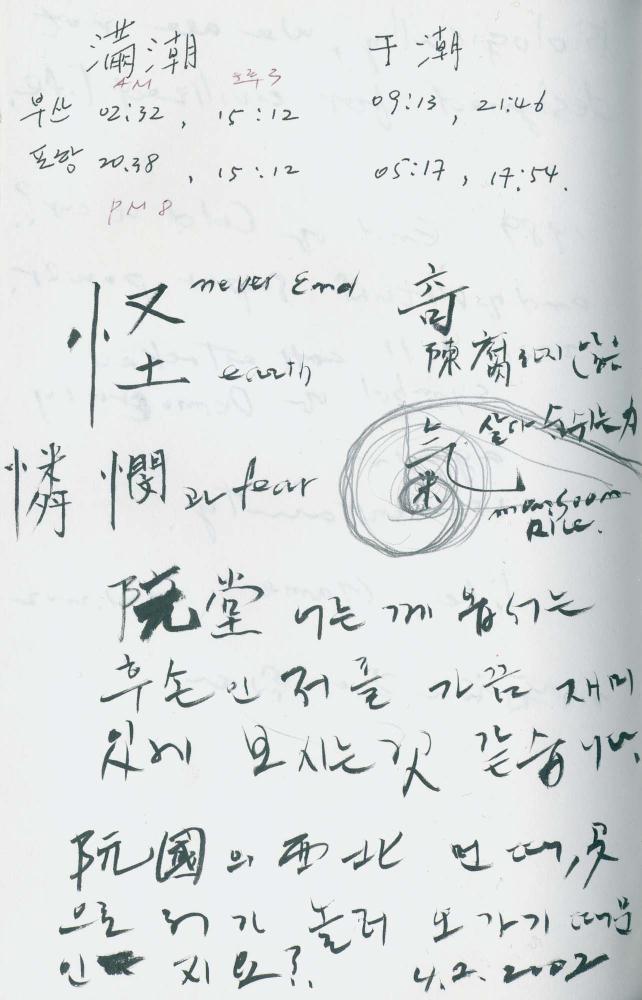 滿潮 于潮
AM 오후 3
부산 02:32, 15:12 09:13, 21:46
포항 20.38, 15:12 05:17, 17:54.
PM 8
怪 never End 奇
earth 陳腐 않음
气 米
憐憫 과 fear monsoon
RICE.
院堂 께 는
후손인 저를 가끔 재미
있게 보시는것 같습니다.
阮國의 西北 먼 때, 곳
으로 놀러 오가기 때문
인 지요?. 4.2.2002